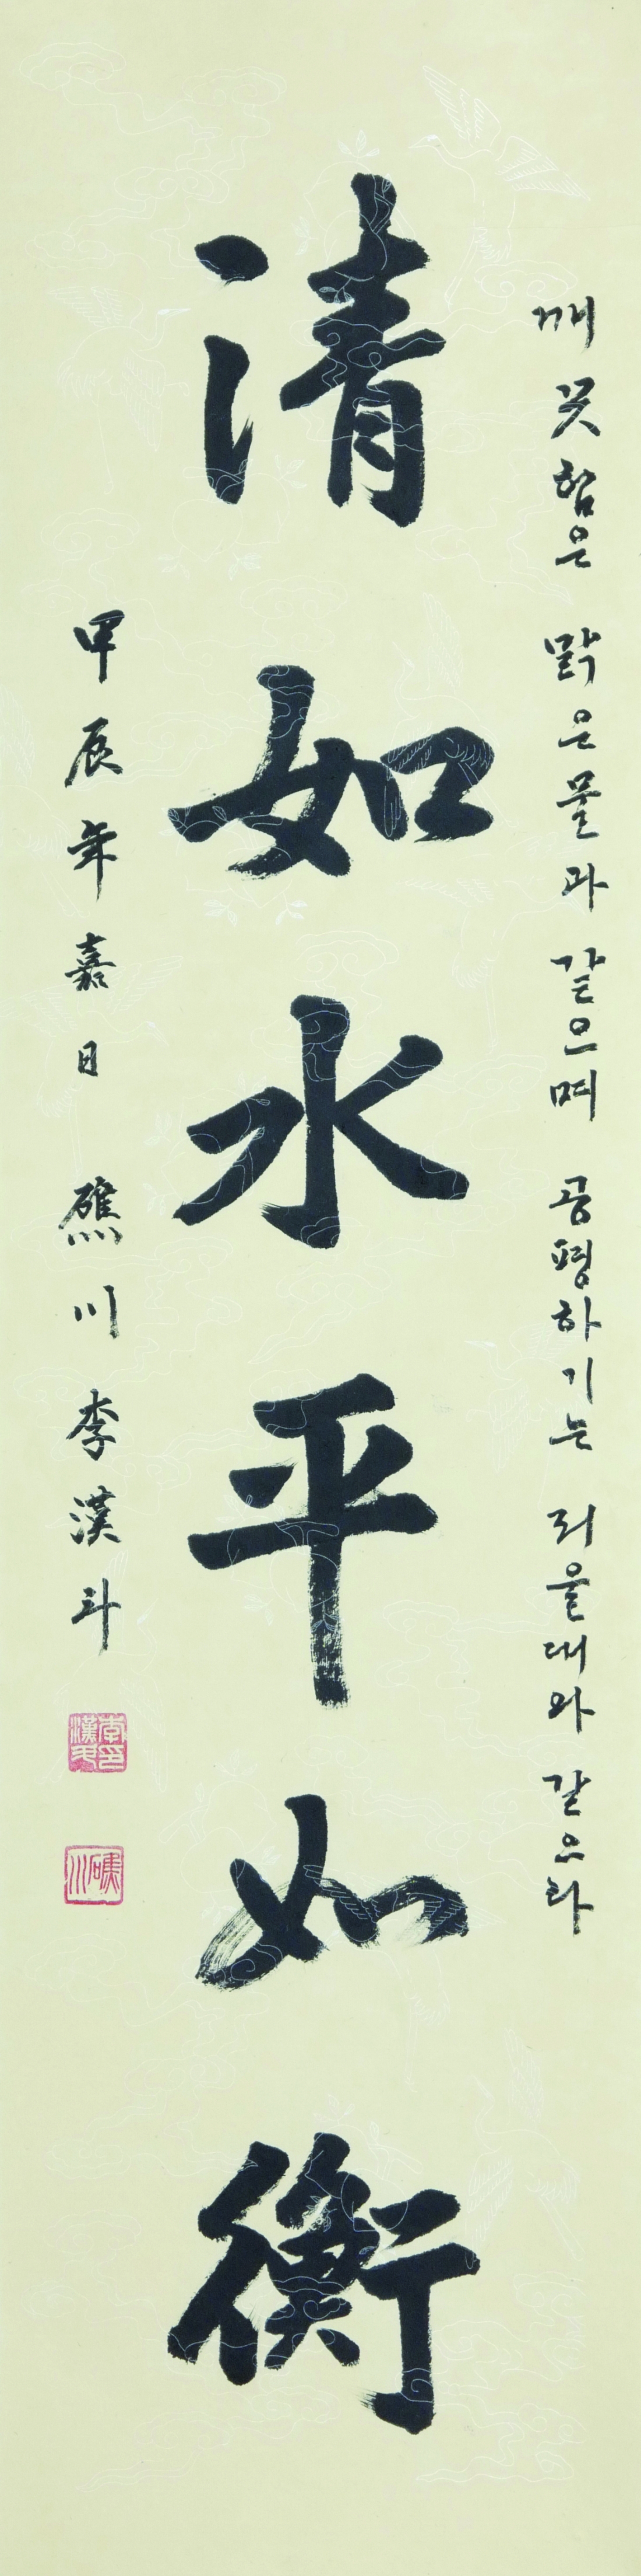 깨끗함은 맑은물과 같으며 공평하기는 저울대와 같으라
清如水平如衡
甲辰年嘉日 礁川 李漢斗
李漢斗印
礁川